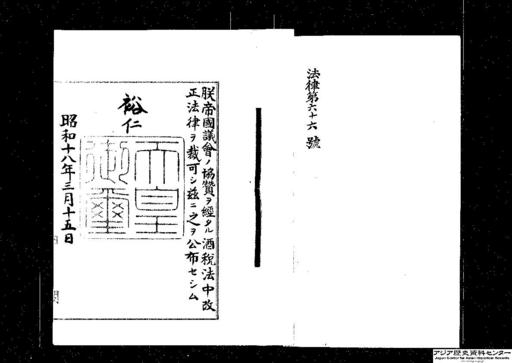 法律第六十六號
朕帝國議會ノ協贊ヲ經タル酒税法中改
正法律ヲ裁可シ茲ニ之ヲ公布セシム
裕仁
天皇
御璽
昭和十八年三月十五日
アジア歴史資料センター
Japan Center for Asian Historical Records